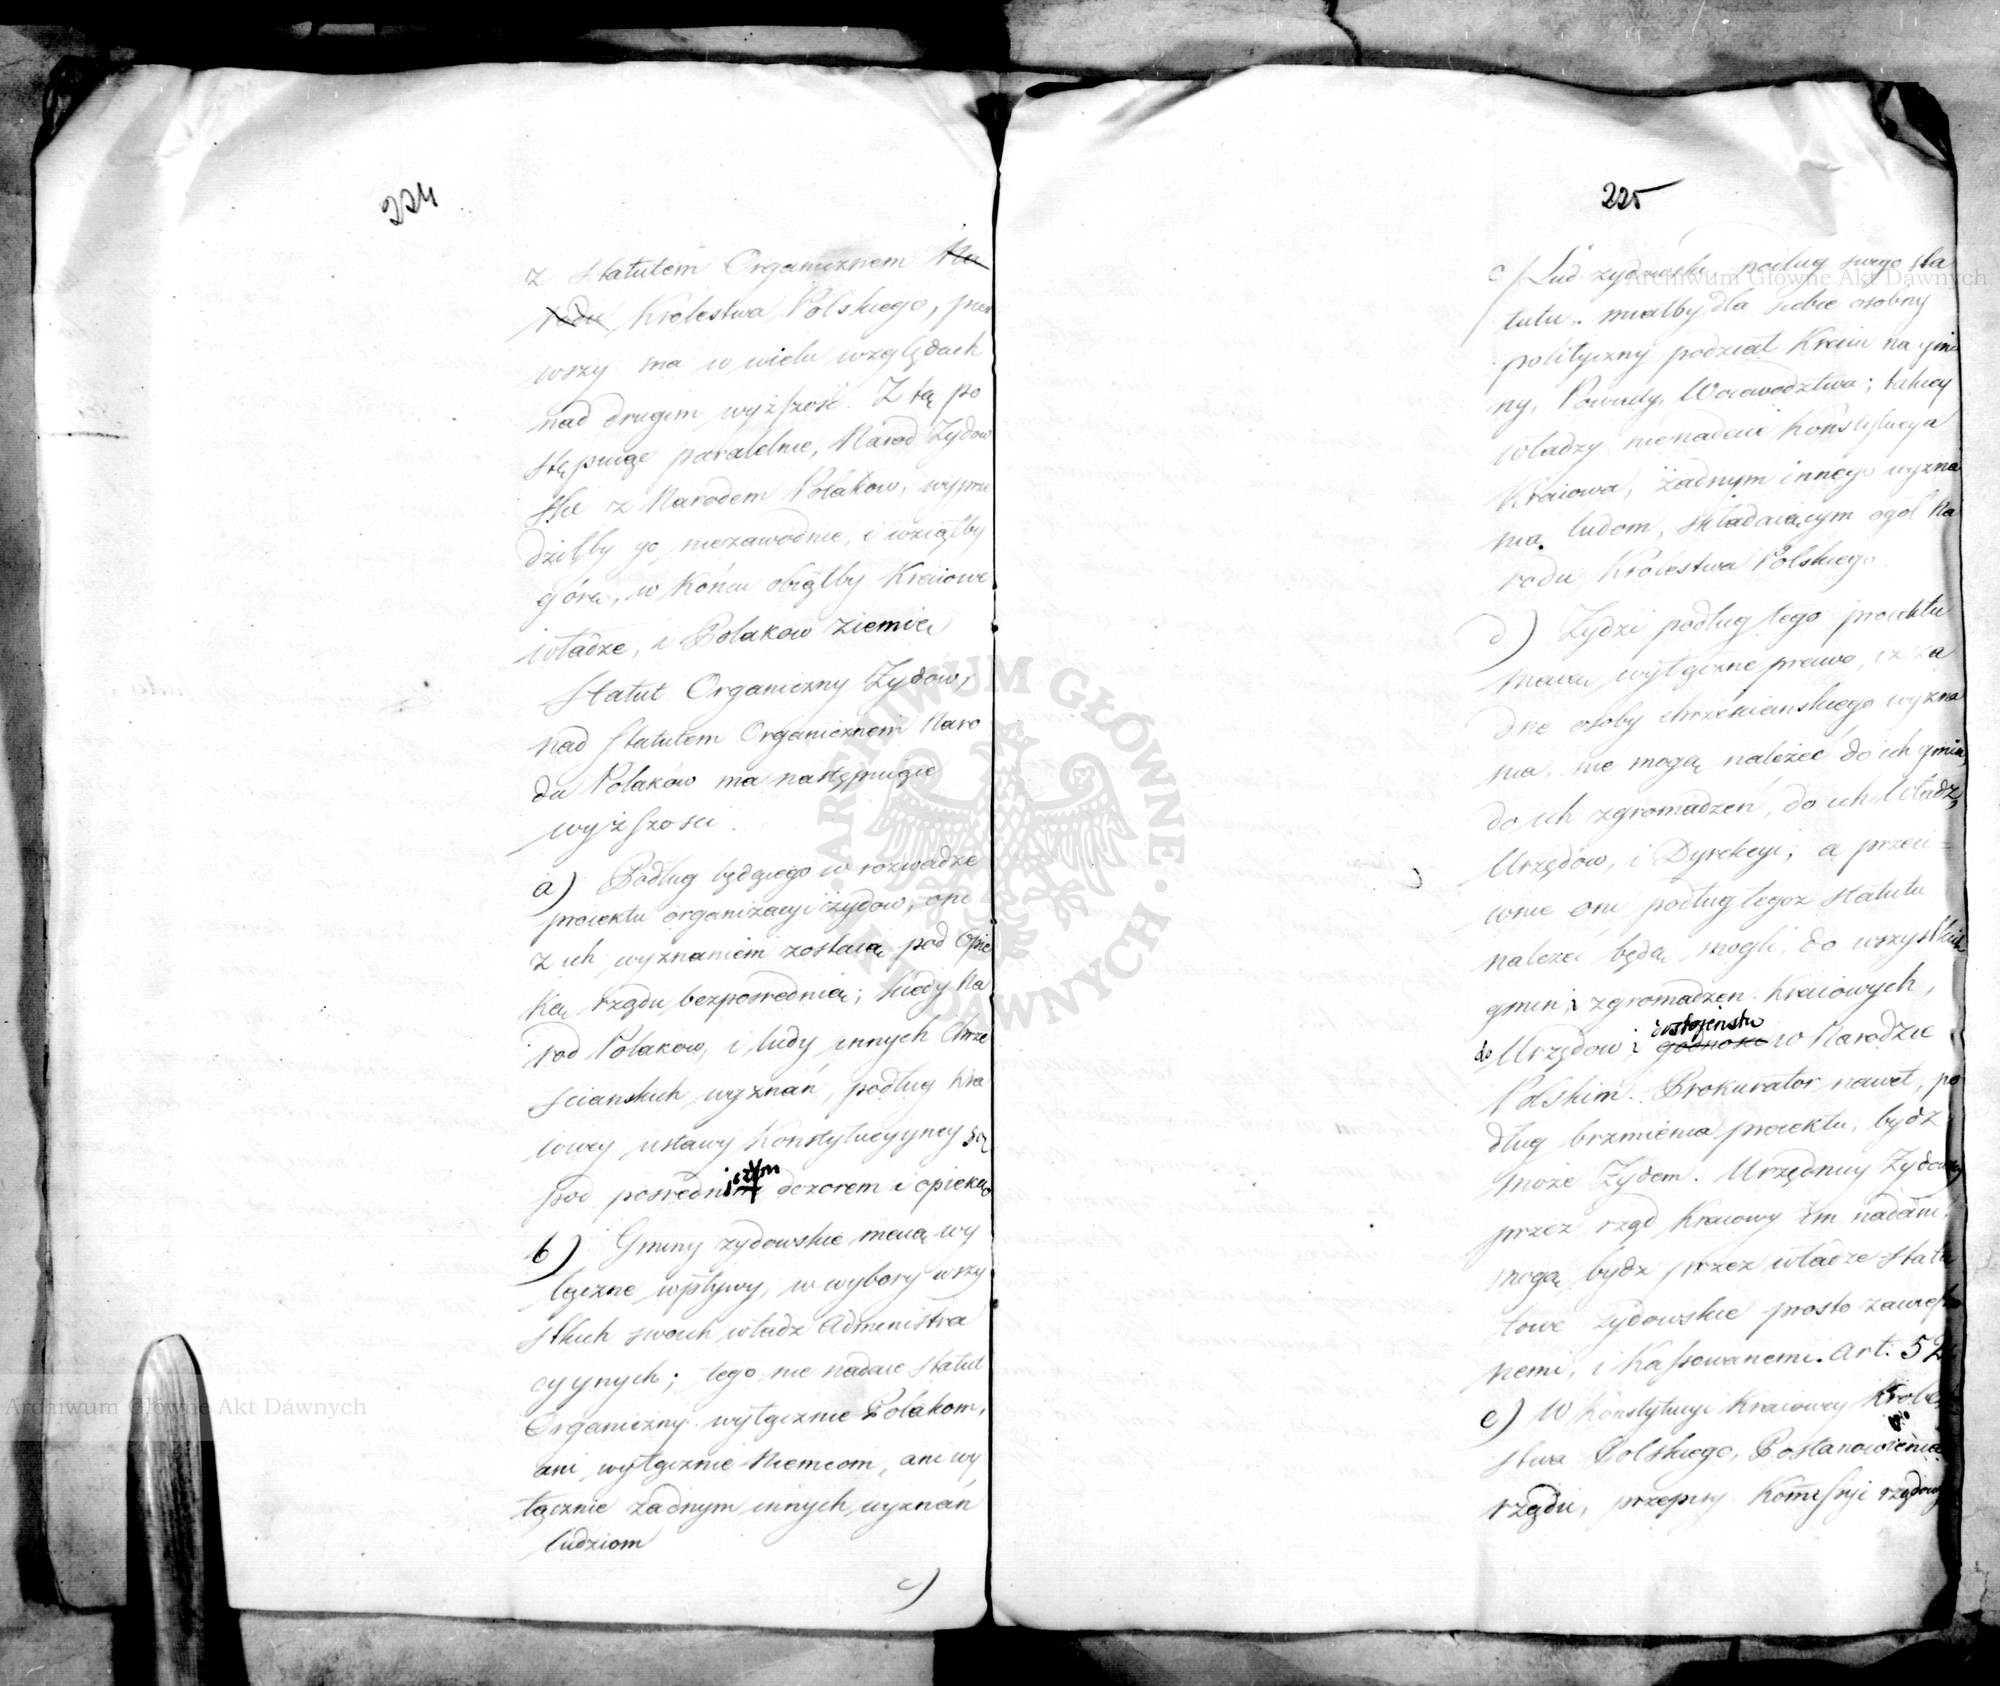 224
z Statutem Organicznem Na
rodu Królestwa Polskiego, pier
wszy ma w wielu względach
nad drugim wyższość. Z tą po
stępuiąc paralelnie, Naród Żydow
ski z Narodem Polaków, wyprze
dziłby go niezawodnie, i wziąłby
górę, w końcu obiąłby Kraiowe
władze, i Polaków ziemię
Statut Organiczny Żydów,
nad Statutem Organicznem Naro
du Polaków ma następuiące
wyższości.
a) Podług będącego w rozwadze
proiektu organizacyi żydow, oni
z ich wyznaniem zostaią pod Opie
ką rządu bezpośrednią; kiedy Na
ród Polakow, i ludy innych Chrze
ścianskich wyznań, podług Kra
iowey ustawy Konstytucyyney są
pod pośredniczym dozorem i opieką
b) Gminy żydowskie maią wy
łączne wpływy, w wybory wszy
stkich swoich władz Administra
cyynych; tego nie nadaie Statut
Organiczny wyłącznie Polakom,
ani wyłącznie Niemcom, ani wy
łącznie żadnym innych wyznań
ludziom
c)
225
c) Lud żydowski podług swego sta
tutu miałby dla siebie osobny
polityczny podział Kraiu na gmi
ny, Powiaty, Woiewodztwa; takiey
władzy nienadaie Konstytucya
Kraiowa, żadnym innego wyzna
nia ludom, składaiącym ogół Na
rodu Królestwa Polskiego.
d) Żydzi podług tego proiektu
maią wyłączne prawo, iż ża
dne osoby chrześcianskiego wyzna
nia nie mogą należeć do ich gmin,
do ich zgromadzeń, do ich Władz,
Urzędów, i Dyrekcyi; a przeci-
wnie oni podług tegoż statutu
należeć będą mogli, do wszystkich
gmin, i zgromadzeń Kraiowych,
dostojeństw
do Urzędow i godności w Narodzie
Polskim. Prokurator nawet, po
dług brzmienia proiektu, bydź
może Żydem. Urzędnicy Żydowscy
przez rząd Kraiowy im nadani
mogą bydź przez władze statu
towe żydowskie prosto zawieszo
nemi, i Kassowanemi. Art. 52.
e) W Konstytucyi Kraiowey Króle
stwa Polskiego, Postanowienia
rządu, przepisy Kommissyi rządowy